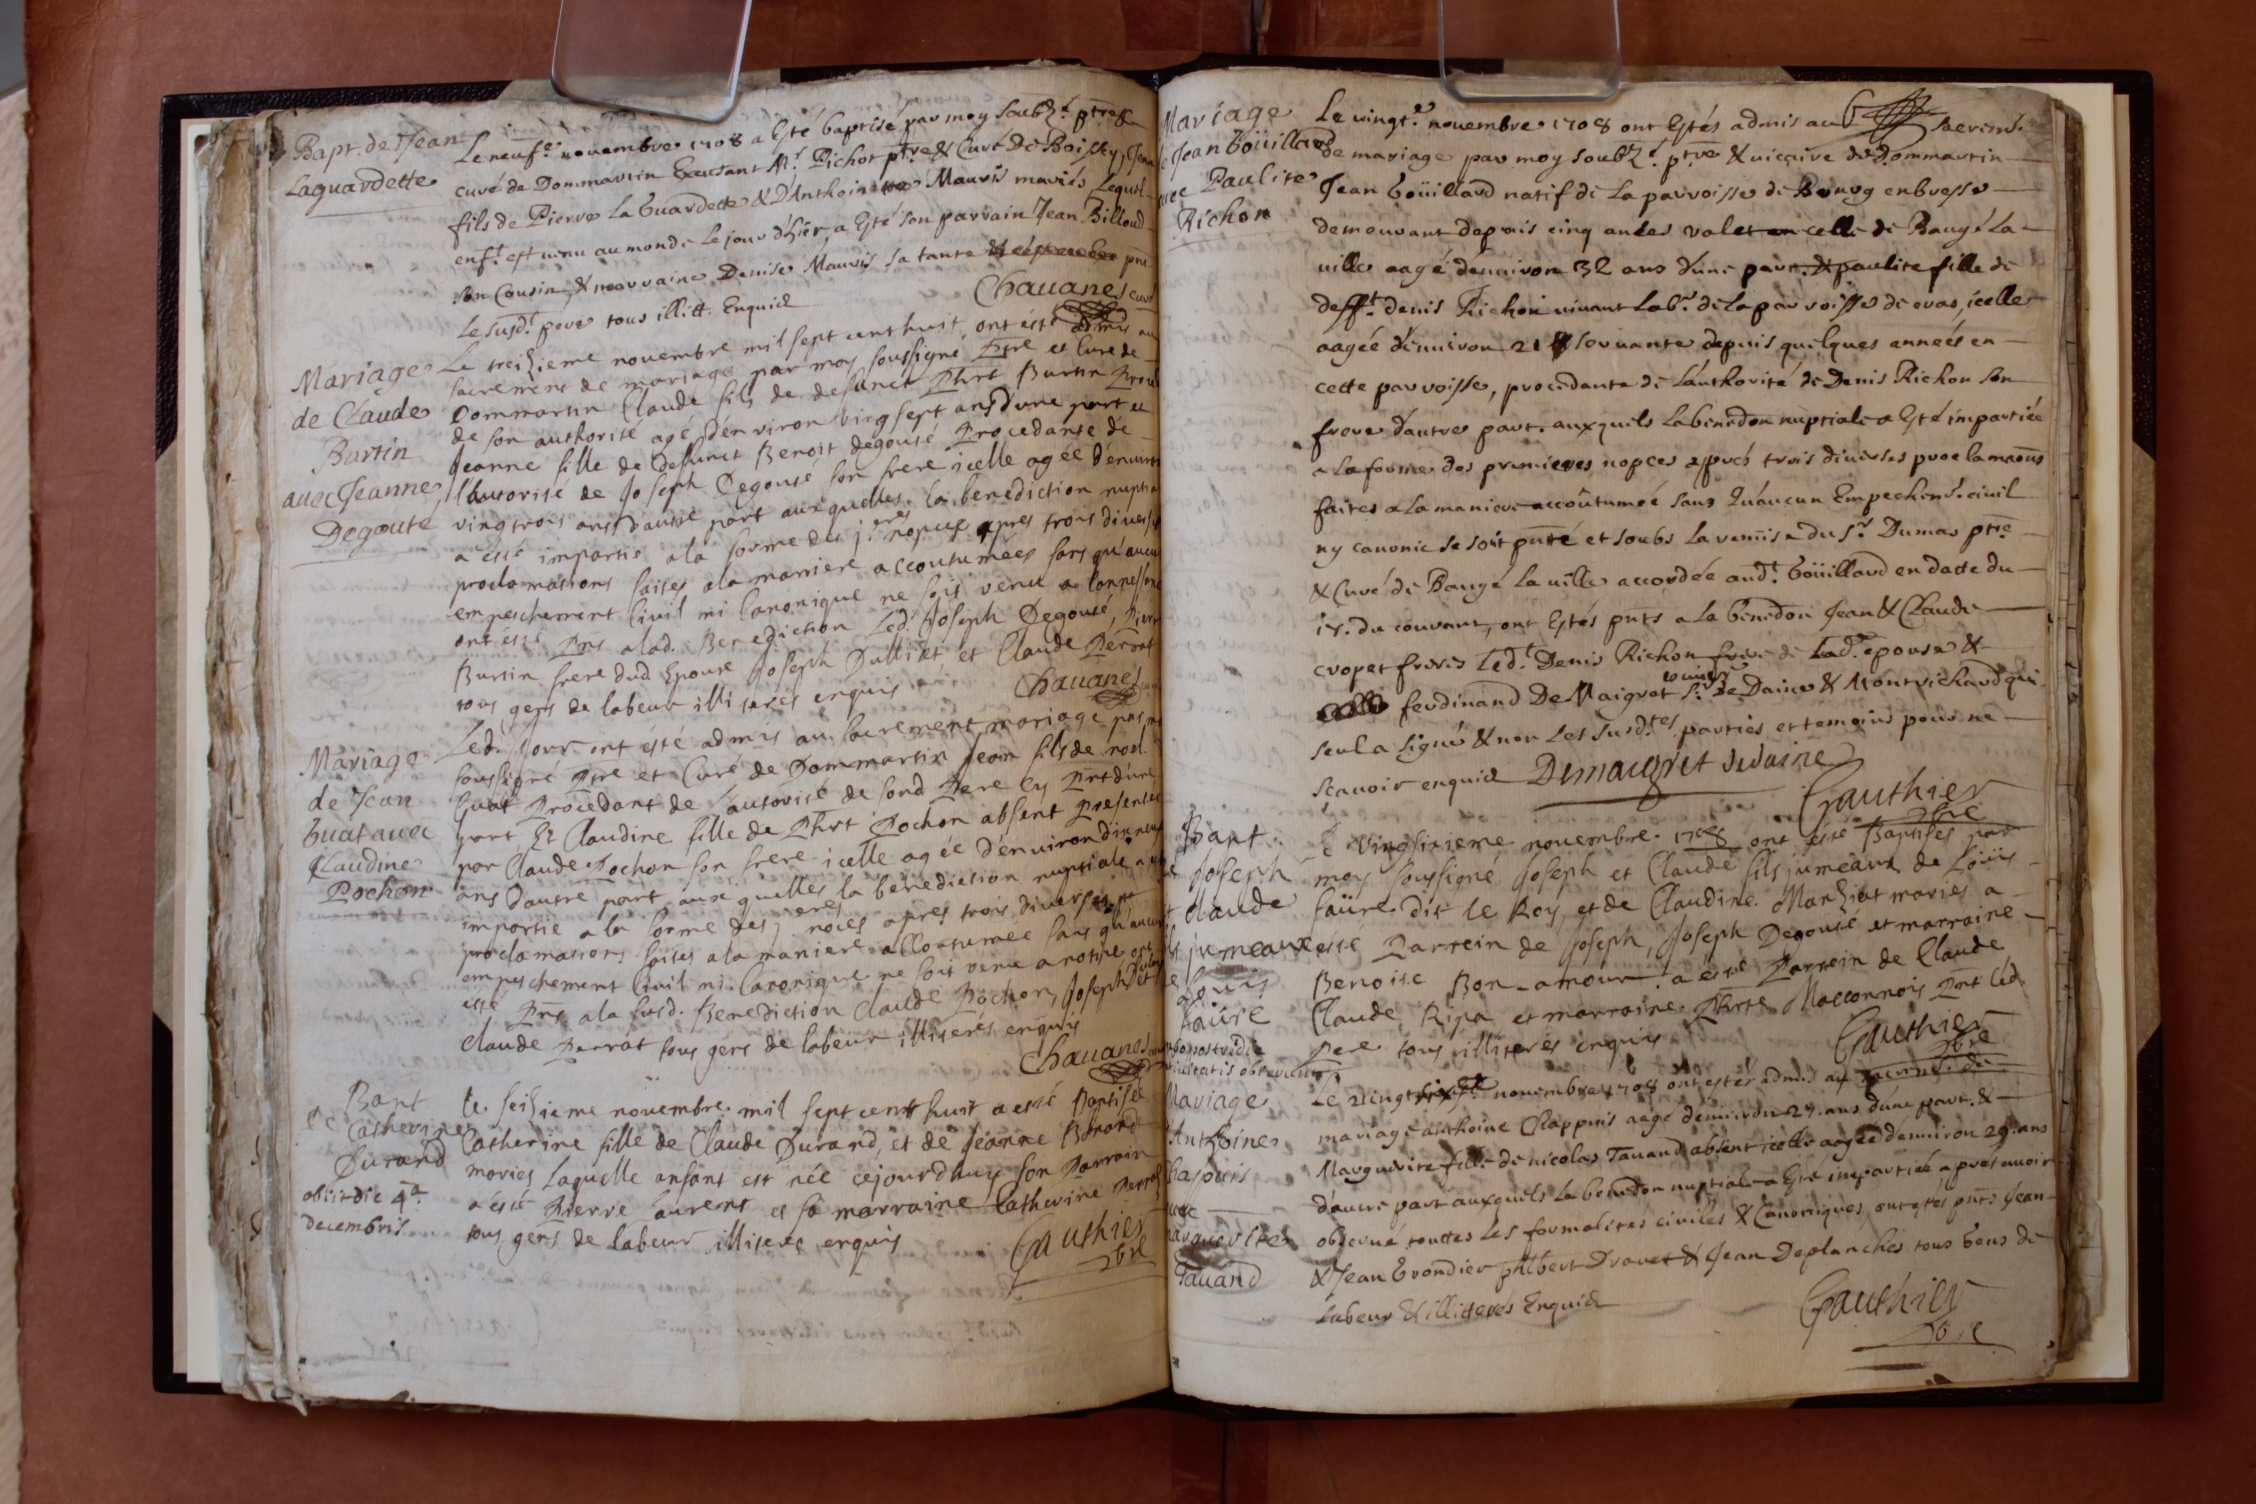 Bapt. de Jean
Laguardette
Le neuf.e novembre 1708 a esté baptisé par moy soubz.é ptre &
curé de Dommartin Exeusant M.r Pichot ptre & Curé De Boissey, Jean
fils de Pierre La Guardette & D'Anthoinette Mauris mariés Lequel
enf.t est venu au monde le jour d'hier, a esté son parrain Jean Billoud
son Cousin & marraine Denise Mauris sa tante
Le susd.t pere tous illitt. Enquid
Chauanes curé
Mariage
de Claude
Burtin
avec Jeanne
Degoute
Le treizieme novembre mil sept cent huit ont esté admis au
sacrement de mariage par moy soussigné Ptre et Curé de
Dommartin Claude fils de defunct Phrt Burtin
de son authorité agé d'environ vingt sept ans d'une part et
Jeanne fille de defunct Benoit degouté Procedante de
l'autorisé de Joseph Degousé son frere icelle agée d'environ
vingtrois ans d'autre part auxquelles la benediction nuptia
a esté impartie a la forme des j.eres nopces apres trois diverses
proclamations faites a la maniere accoutumées sans qu'aucun
empeschement Civil ni Canonique ne soit venu a
ont esté Pns alad. Benediction Led. Joseph Degousé, Pierre
Burtin frere dud Epoux Joseph Dulliat et Claude Perrat
tous gens de labeur illiterés enquis
Chauanes
Mariage
de Jean
Guat avec
Claudine
Pochon
Led. Jour ont esté admis au sacrement mariage par moy
soussigné Ptre et Curé de Dommartin Jean fils de
Guat Procedant de l'autorisé de sond Pere Cy Prt d'une
part Et Claudine fille de Phrt Pochon absent presentée
par Claude Pochon son frere icelle agée d'environ dixneuf
ans d'autre part auxquelles la benediction nuptiale a
impartie a la forme des j.eres noces apres trois diverses
proclamations faites a la maniere accoutumée sans qu'aucun
empeschement Civil ni Canonique ne soit venu a notise ont
esté Pns a la susd. Benediction Claude Pochon, Joseph
Claude Perrat tous gens de labeur illiterés enquis
Chauanes
Bapt
de Catherine
Durand
obiit die 4.a
decembris
Le seiziéme novembre mil sept cent huit a esté Baptisée
Catherine fille de Claude Durand, et de Jeanne Bonard
mariés Laquelle enfant est née cejourdhuy son Parrain
a esté Pierre Laurent et sa marraine Catherine Perret
tous gens de labeur illiteré enquis
Gauthier
pbre
Mariage
Jean Boüillard
avec Paulite
Richon
Le vingt.e novembre 1708 ont Estés admis au sacrem.t
de mariage par moy soubz.é ptre & vicaire de dommartin
Jean boüillard natif de la parroisse de Bourg en bresse
demeurant depuis cinq années valet en celle de Baugé La
ville aagé denviron 32 ans d'une part. & paulite fille de
deff.t denis Richon vivant Lab.r de la parroisse de cras, icelle
aagée d'environ 21 servante depuis quelques années en
cette parroisse, procedante de L'authorité de Denis Richon son
frere d'autre part. auxquels La benedon nuptiale a Esté impartiée
a la forme des premieres nopces appres trois diverses proclamaons
faites a la maniere accoûtumée sans Qu'aucun Empechem.t civil
ny canonic se soit pnté et soubs la remise du s.r Dumas ptre
& Curé de Baugé la ville accordée aud.t boüillard en datte du
17. du courant, ont Estés pnts a la benedon Jean & Claude
cropet freres Led.t Denis Richon frere de Lad.e epouse &
ferdinand De Maigret s.r De Daine & Montrichard qui
seul a signé & non Les susd.tes parties et temoins pour ne
scavoir enquid Demaigret dedaine
Gauthier
pbre
Bapt
Joseph
Claude
jumeaux
Louis
faüre
Le vingtsixieme novembre 1708 ont esté Baptisés par
moy soussigné Joseph et Claude fils jumeaux de Loüis
faüre dit le Roy, et de Claudine Manziat mariés a
esté Parrein de Joseph, Joseph Degousé et marraine
Benoite Bon-amour. a esté Parrein de Claude
Claude Ripa et marraine Phrte Maconnois Prt led.
Pere tous illiterés enquis
Gauthier
pbre
Mariage
Anthoine
Chapuis
avec
marguerite
Tavand
Le vingt novembre 1708 ont estés admis au sacrem.t de
mariage anthoine Chappuis aagé denviron 27 ans dune part. &
Marguerite fille de nicolas Tavand absent icelle aagée denviron 29 ans
d'autre part auxquels La benedon nuptiale a Esté impartiée apres avoir
observé touttes Les formalités civiles & Canoniques, ont estés pnts Jean
& Jean brondier philbert Drovet & Jean Deplanches tous gens de
labeur & illitterés Enquid
Gauthier
pbre